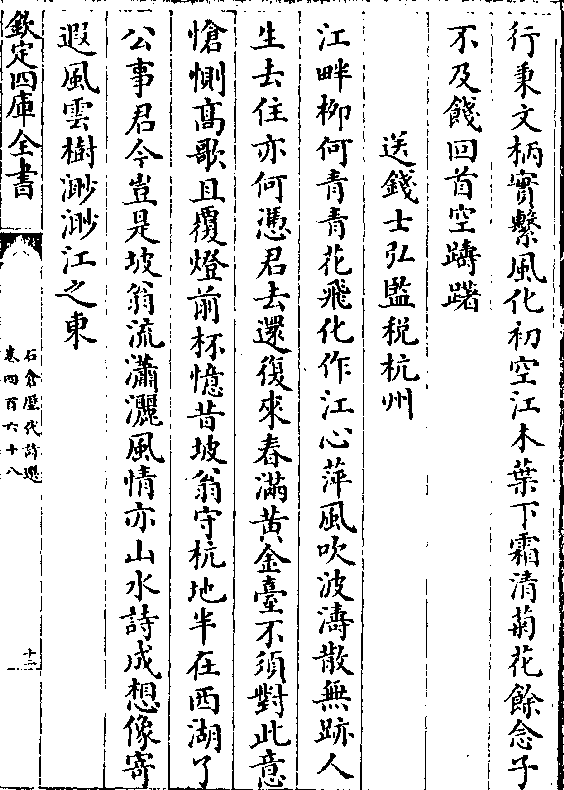 行秉文柄實繫風化初空江木葉下霜清菊花餘念子
不及餞回首空躊躇
送錢士弘監税杭州
江畔柳何青青花飛化作江心萍風吹波濤散無跡人
生去住亦何憑君去還復來春滿黄金臺不須對此意
愴惻髙歌且覆燈前杯憶昔坡翁守杭地半在西湖了
公事君今豈是坡翁流瀟灑風情亦山水詩成想像寄
遐風雲樹渺渺江之東
欽定四庫全書
石倉歴代詩選
卷四百六十八
十三